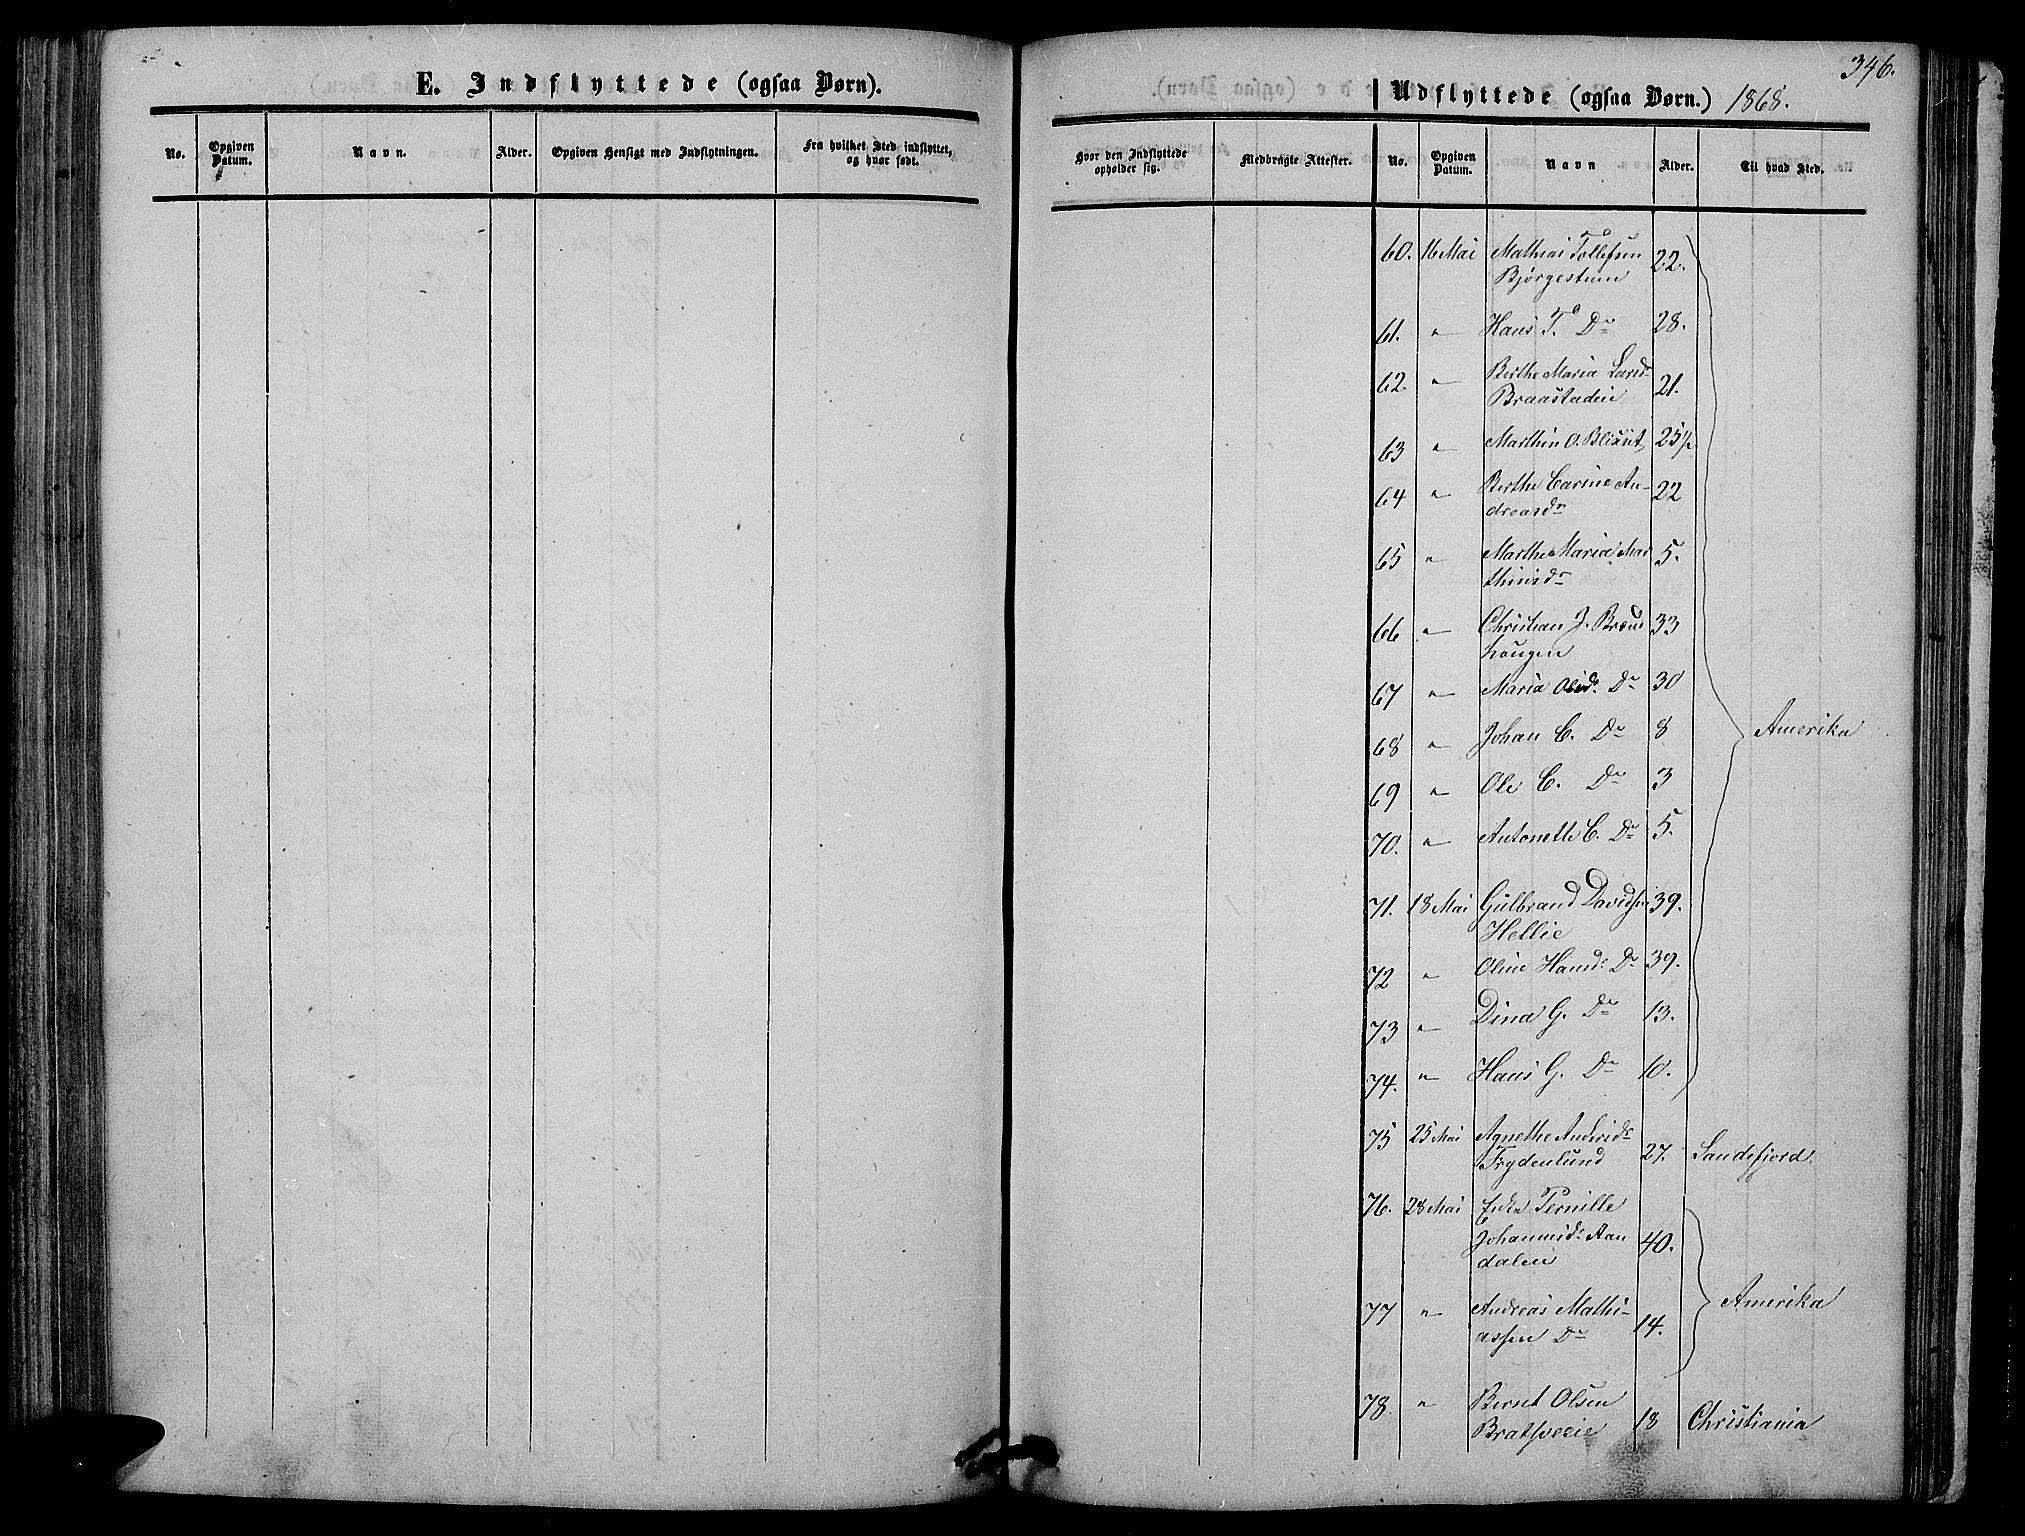 346.
E. Indflyttede (ogsaa Børn).
No. Opgiven Datum. Navn. Alder. Opgiven Hensigt med Indflytningen. Fra hvilket Sted indflyttet, og hvor født.
Udflyttede (ogsaa Børn.) 1868.
Hvor den Indflyttede opholder sig. Medbragte Attester. No. Opgiven Datum. Navn Alder. Til hvad Sted.
60. 16 Mai Mathias Tollefsen 22.
Bjørgestuen
61. " Hans T. Do 28.
62. " Berthe Maria Larsdr
Braastadeie 21.
63 " Marthin O. Blixet 25½
64 " Berthe Carine An- 22
dreasdr
65 " Marthe Maria Mar 5.
thinsdr
66 " Christian J. 33
hougen
67 " Maria Olsdr Do 30
68 " Johan C. Do 8
Amerika
69 " Ole C. Do 3
70. " Antonette C. Do 5.
71. 18 Mai Gulbrand Davidsen 39.
Hellie
72 " Oline Hansdr Do 39.
73 " Dina G. Do 13.
74. " Hans G. Do 10.
75 25 Mai Agnethe Andersdr
Frydenlund 27. Sandefjord.
76. 28 Mai Enke Pernille
Johannisdr Aan 40.
dalen
77 " Andreas Mathi- Amerika
assen Do 14.
78. " Bernt Olsen
Bratsveeie 18 Christiania